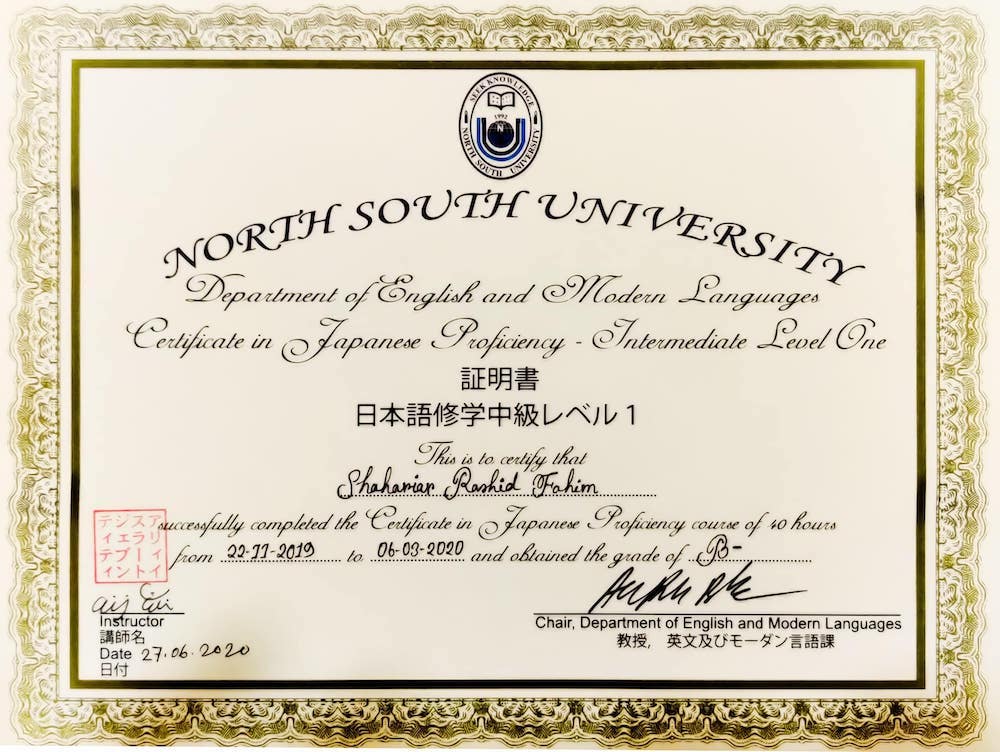 SEEK KNOWLEDGE
1992
N
NORTH SOUTH UNIVERSITY
NORTH SOUTH UNIVERSITY
Department of English and Modern Languages
Certificate in Japanese Proficiency - Intermediate Level One
証明書
日本語修学中級レベル1
This is to certify that
Shahariar Rashid Fahim
successfully completed the Certificate in Japanese Proficiency course of 40 hours
from 22-11-2019 to 06-03-2020 and obtained the grade of B-
Instructor
講師名
Date 27.06.2020
日付
Chair, Department of English and Modern Languages
教授, 英文及びモーダン言語課